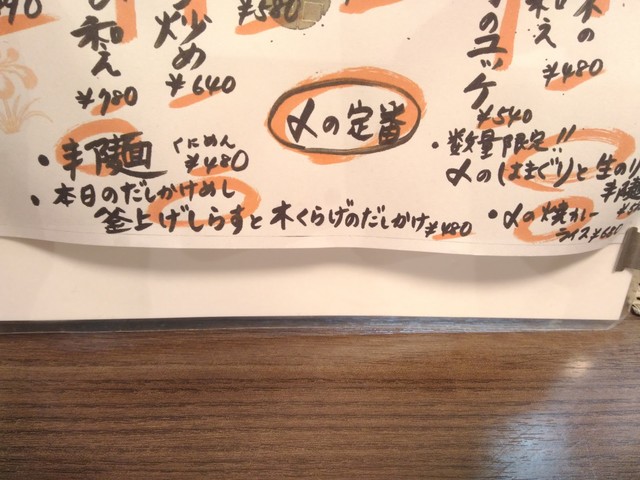 和え
¥980
炒め
¥640
¥580
のユッケ
¥540
和え
¥480
〆の定番
・辛麺 くにめん ¥480
・本日のだしかけめし
釜上げしらすと木くらげのだしかけ ¥480
・数量限定!!
〆のはまぐりと生のり
辛麺
・〆の焼カレー
ライス ¥680